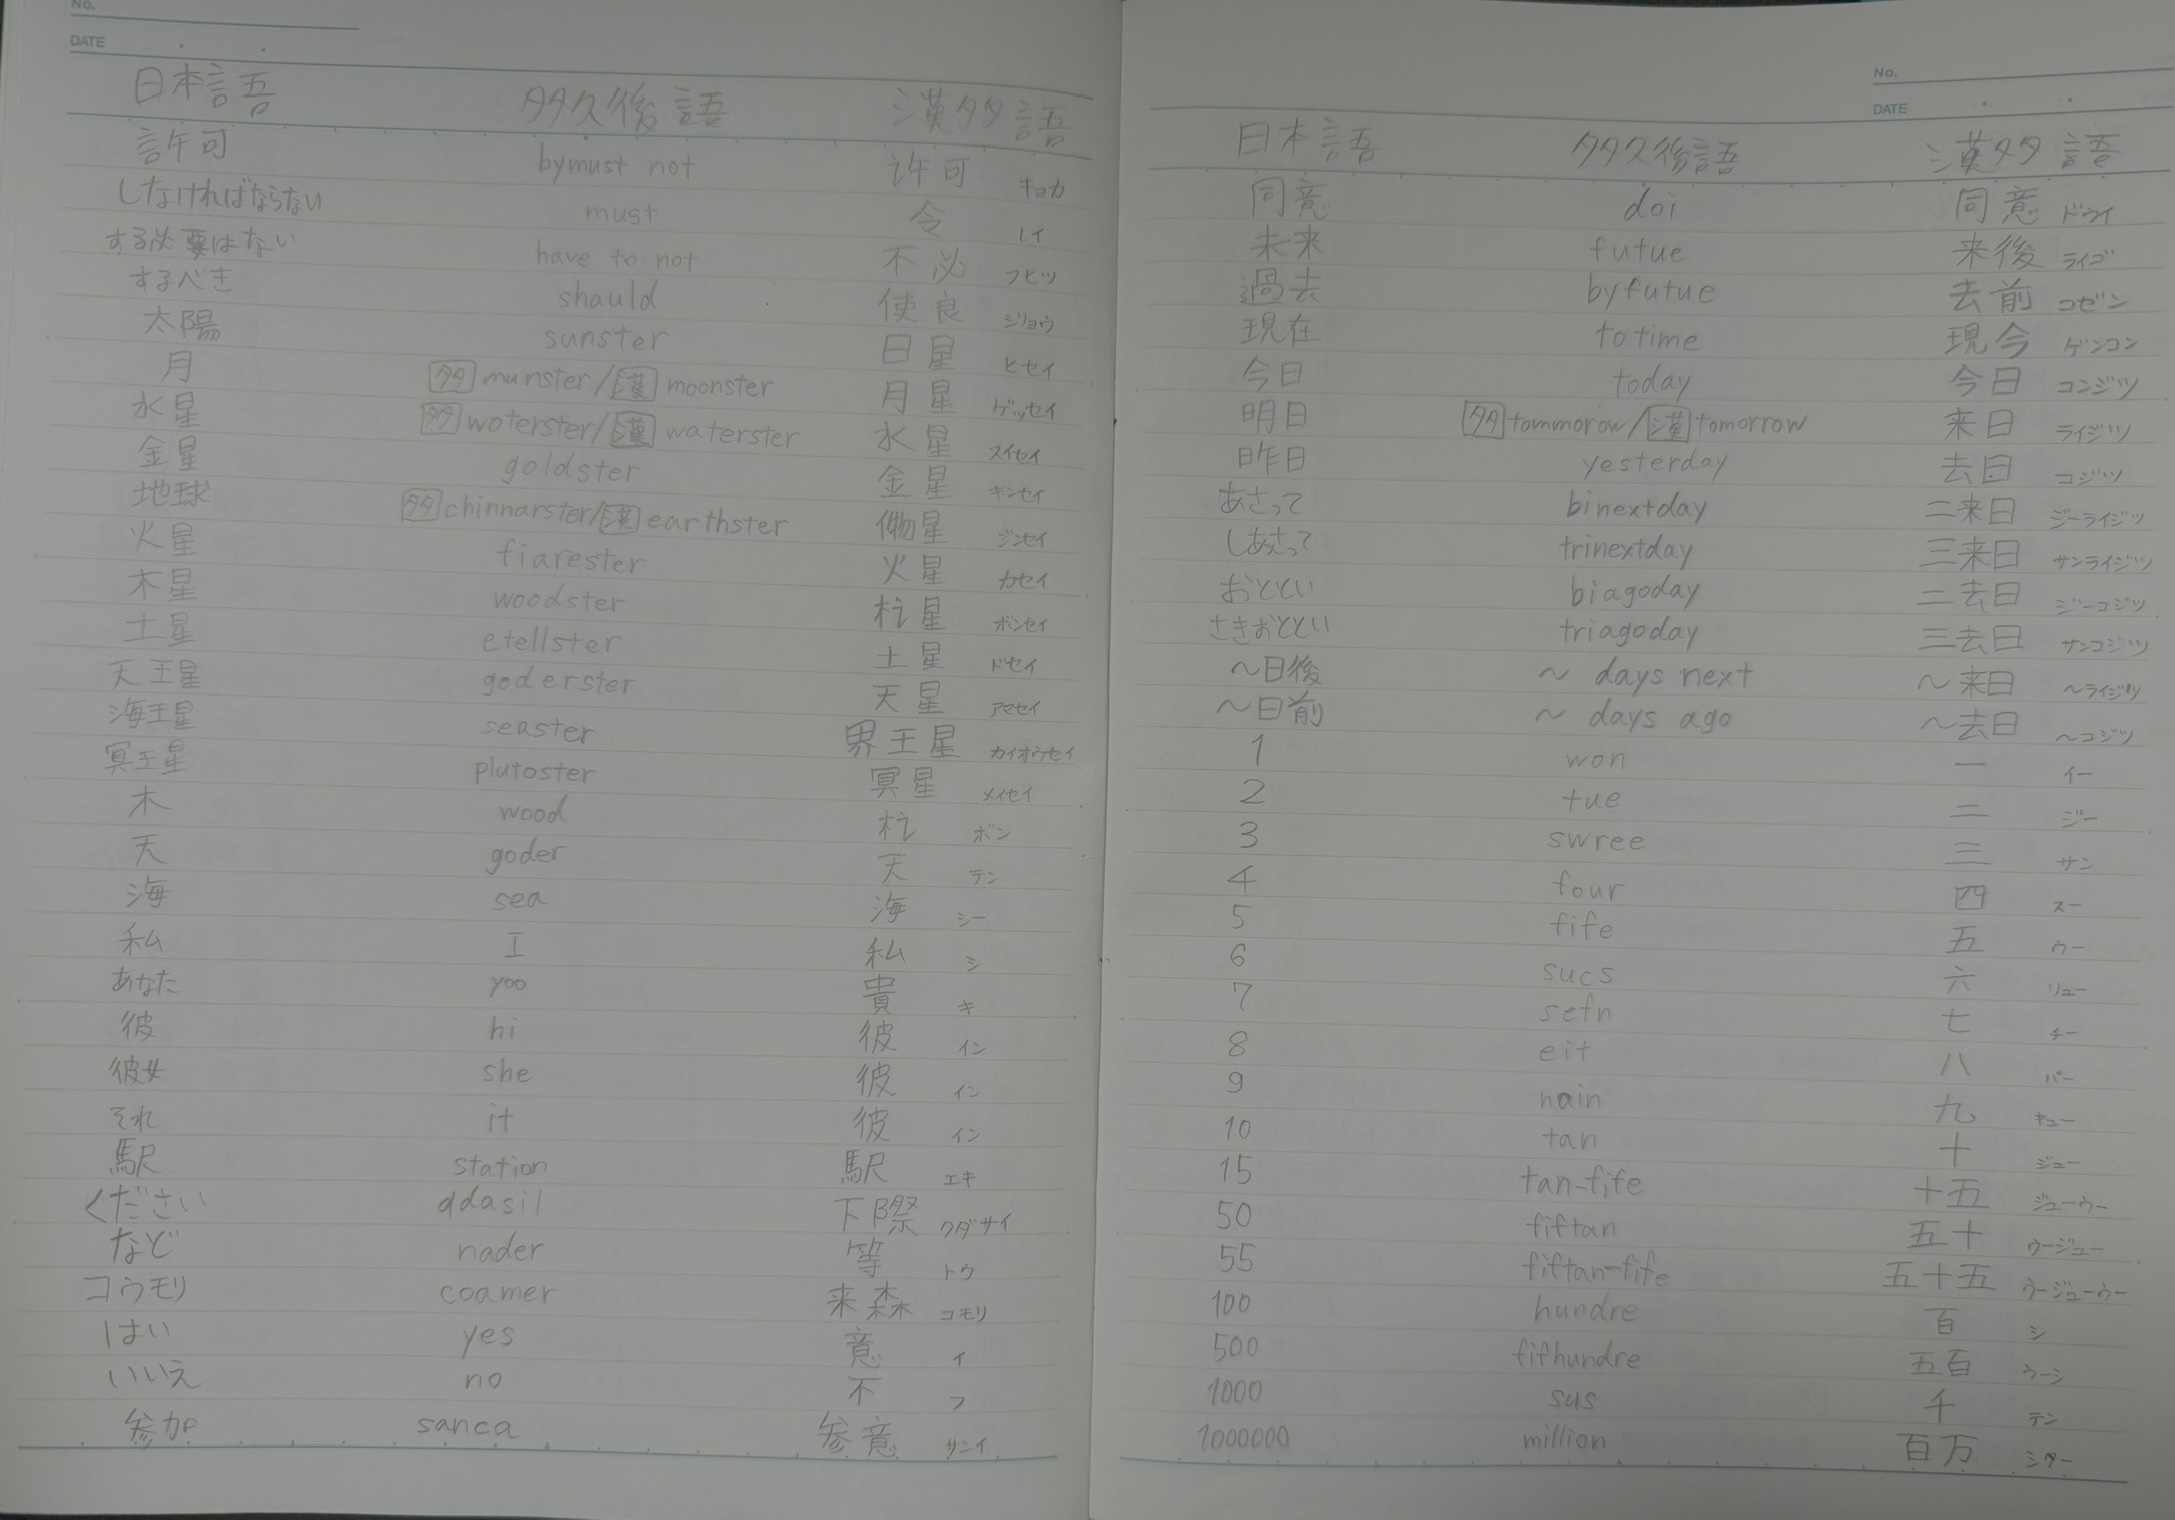 No.
DATE
日本語 多久後語 漢多語
許可 bymust not 许可 キョカ
しなければならない must 令 レイ
する必要はない have to not 不必 フヒツ
するべき shauld 使良 ジリョウ
太陽 sunster 日星 ヒセイ
月 多 munster/漢 moonster 月星 ゲッセイ
水星 多 woterster/漢 waterster 水星 スイセイ
金星 goldster 金星 キンセイ
地球 多 chinnarster/漢 earthster 星 ジンセイ
火星 fiarester 火星 カセイ
木星 woodster 星 ボンセイ
土星 etellster 土星 ドセイ
天王星 goderster 天星 アマセイ
海王星 seaster 界王星 カイオウセイ
冥王星 plutoster 冥星 メイセイ
木 wood ボン
天 goder 天 テン
海 sea 海 シー
私 I 私 シ
あなた yoo 貴 キ
彼 hi 彼 イン
彼女 she 彼 イン
それ it 彼 イン
駅 station 駅 エキ
ください qdasil 下際 クダサイ
など nader 等 トウ
コウモリ coamer 来森 コモリ
はい yes 意 イ
いいえ no 不 フ
参加 sanca 参意 サンイ
No.
DATE
日本語 多久後語 漢多語
同意 doi 同意 ドウイ
未来 futue 来後 ライゴ
過去 byfutue 去前 コゼン
現在 totime 現今 ゲンコン
今日 today 今日 コンジツ
明日 多 tommorow/漢 tomorrow 来日 ライジツ
昨日 yesterday 去日 コジツ
あさって binextday 二来日 ジーライジツ
しあさって trinextday 三来日 サンライジツ
おととい biagoday 二去日 ジーコジツ
さきおととい triagoday 三去日 サンコジツ
～日後 ～ days next ～来日 ～ライジツ
～日前 ～ days ago ～去日 ～コジツ
1 won 一 イー
2 tue 二 ジー
3 swree 三 サン
4 four 四 スー
5 fife 五 ウー
6 sucs 六 リュー
7 sefn 七 チー
8 eit 八 パー
9 nain 九 キュー
10 tan 十 ジュー
15 tan-fife 十五 ジューウー
50 fiftan 五十 ウージュー
55 fiftan-fife 五十五 ウージューウー
100 hundre 百 シ
500 fifhundre 五百 ウーシ
1000 sus 千 テン
1000000 million 百万 シター